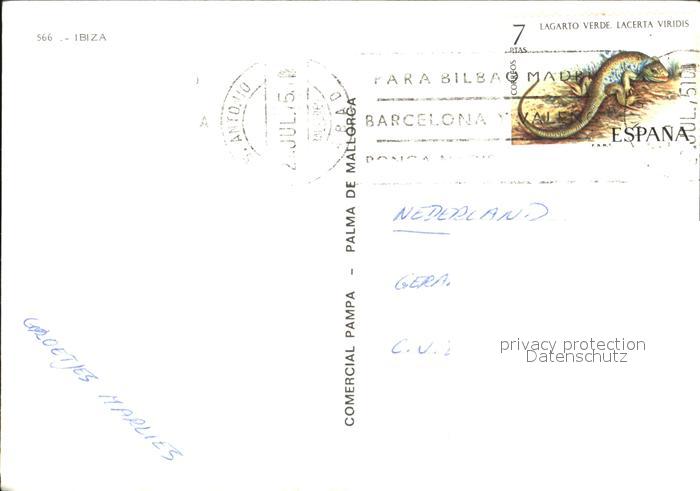 566 .- IBIZA
7 PTAS
LAGARTO VERDE. LACERTA VIRIDIS
CORREOS
ESPAÑA
S. ANTONIO
JUL.75
PARA BILBAO MADRI
BARCELONA Y VALE
COMERCIAL PAMPA - PALMA DE MALLORCA
NEDERLAND
GERA
C.V.
privacy protection
Datenschutz
GROETJES MARLIES